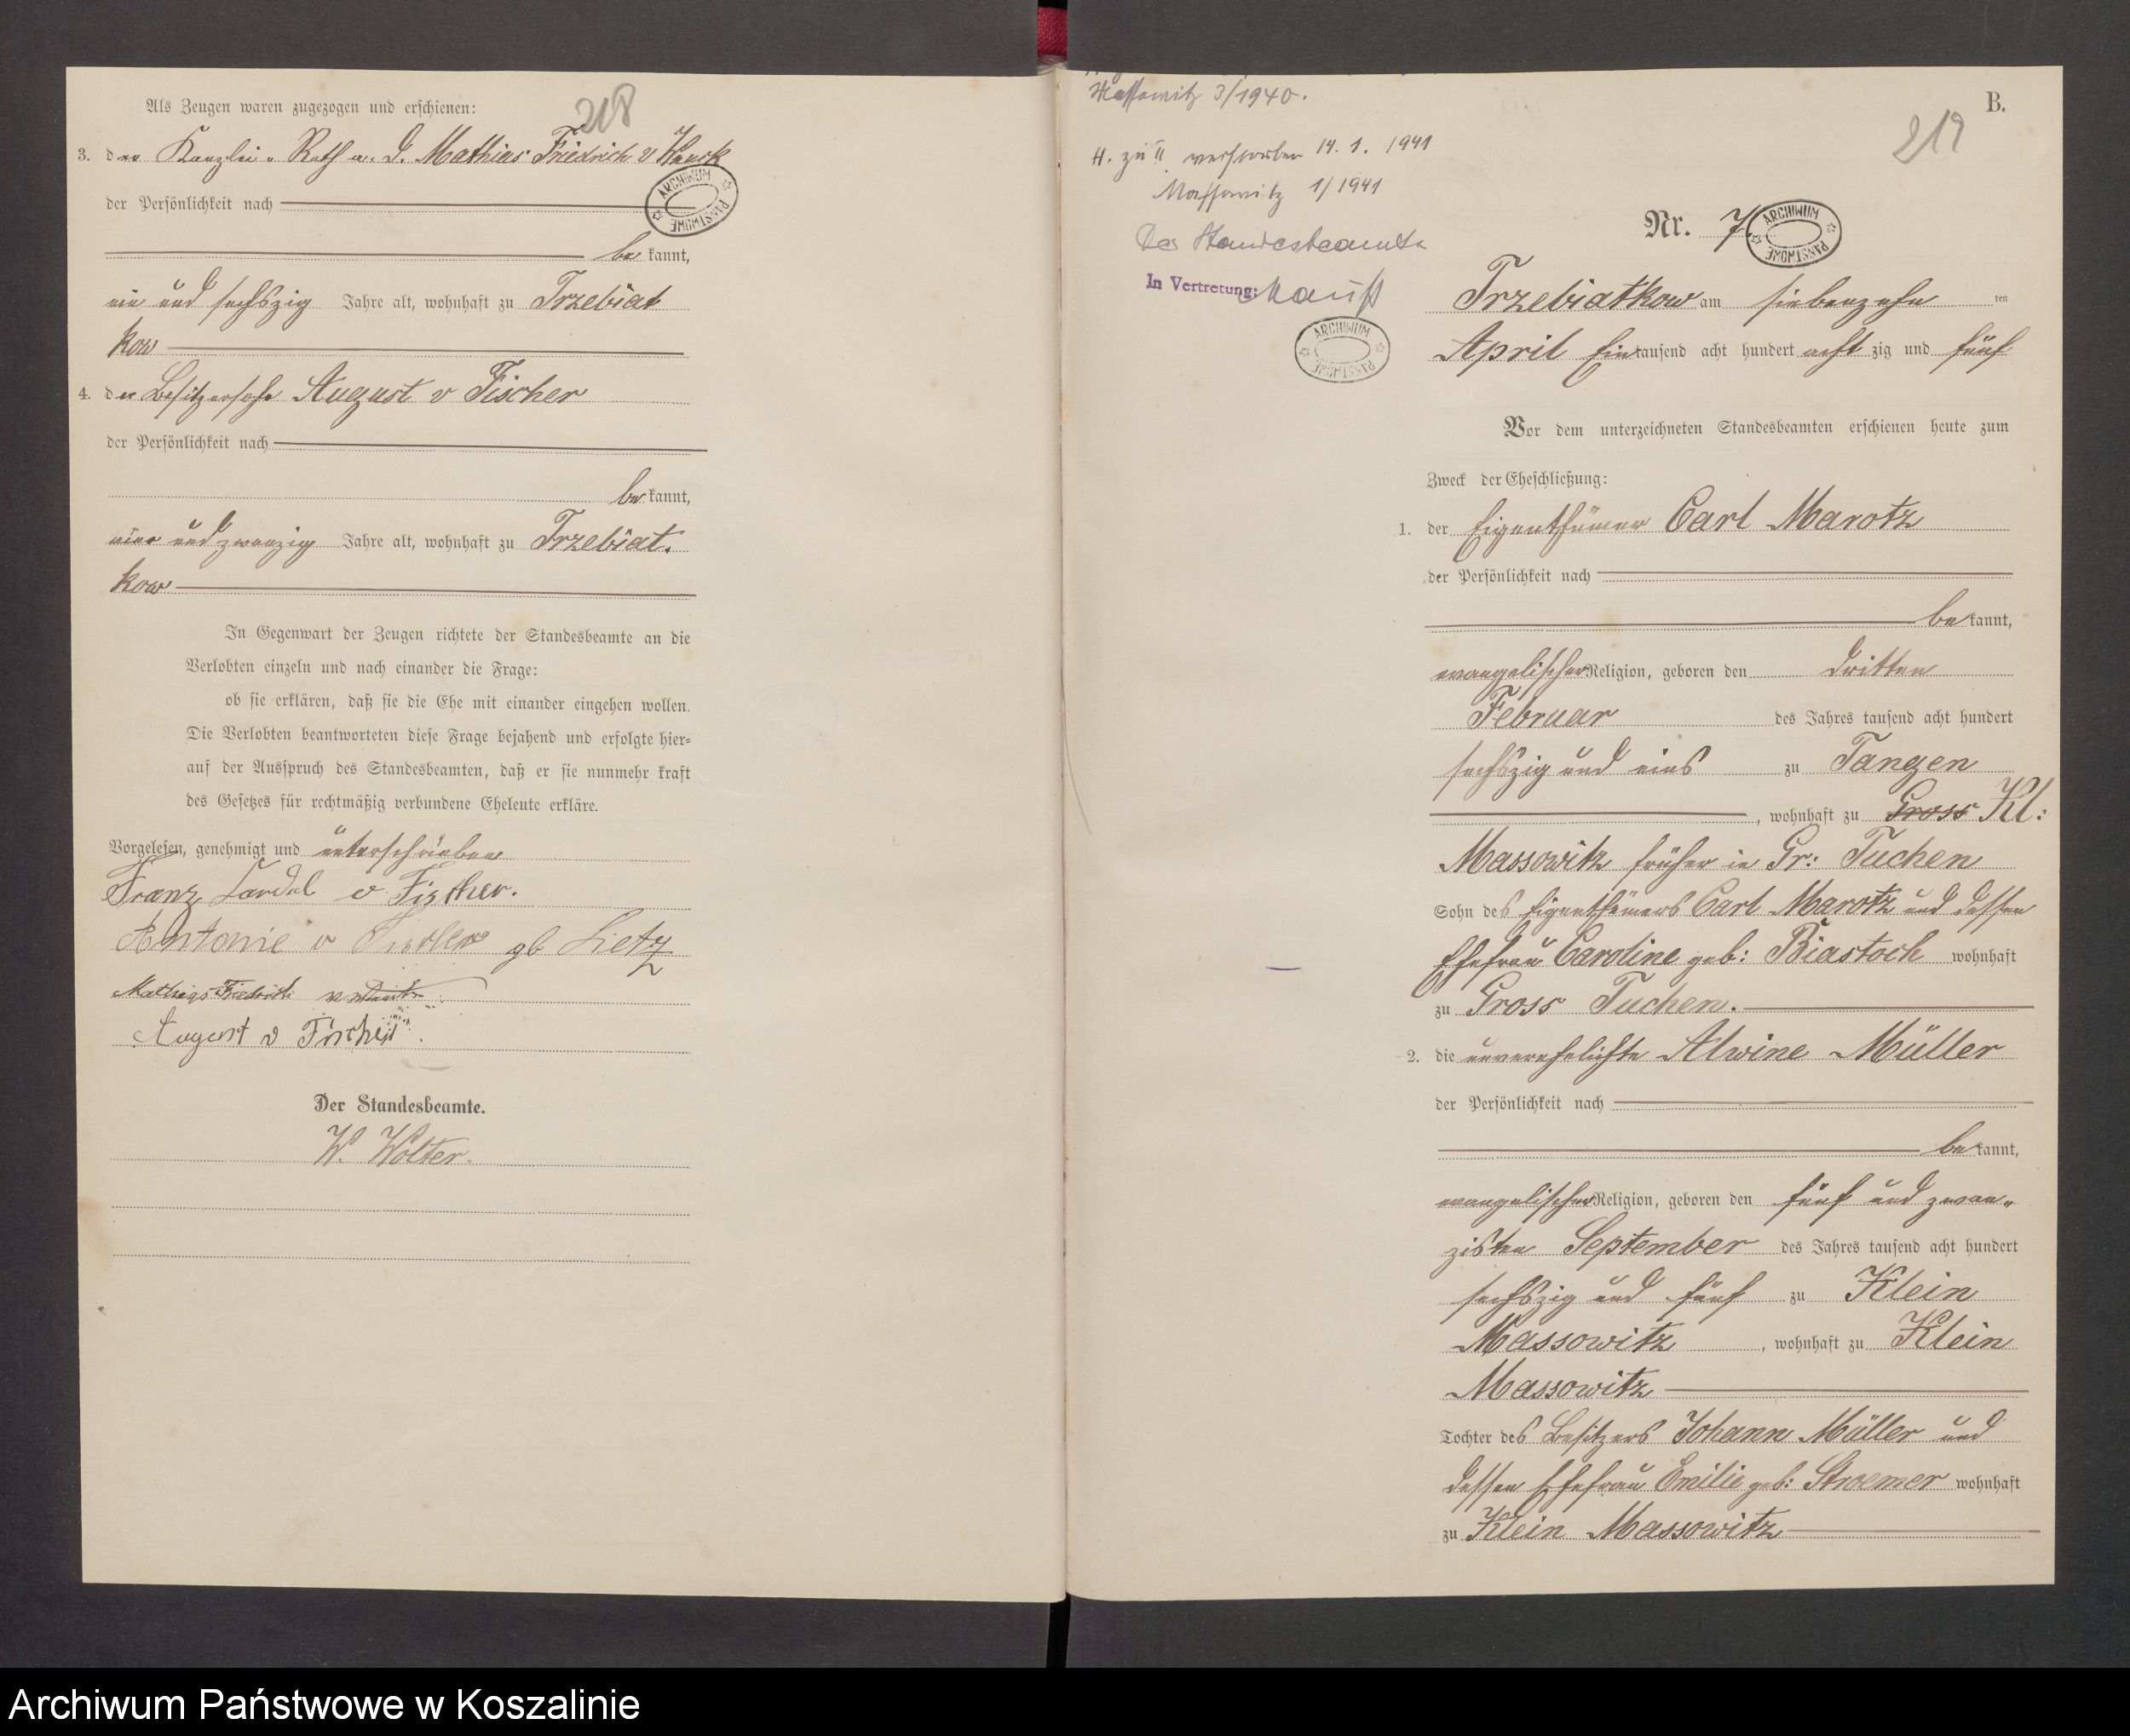 218
Als Zeugen waren zugezogen und erschienen:
3. der Kanzlei-Rath a. D. Mathias Friedrich v
der Persönlichkeit nach
bekannt,
ein und sechszig Jahre alt, wohnhaft zu Trzebiat
kow
4. der Besitzersohn August v Fischer
der Persönlichkeit nach
bekannt,
vier und zwanzig Jahre alt, wohnhaft zu Trzebiat.
kow
In Gegenwart der Zeugen richtete der Standesbeamte an die
Verlobten einzeln und nach einander die Frage:
ob sie erklären, daß sie die Ehe mit einander eingehen wollen.
Die Verlobten beantworteten diese Frage bejahend und erfolgte hier-
auf der Ausspruch des Standesbeamten, daß er sie nunmehr kraft
des Gesetzes für rechtmäßig verbundene Eheleute erkläre.
Vorgelesen, genehmigt und unterschrieben
Franz v Fischer.
Antonie v Fischer gb Lietz
Mathias Friedrich v
August v Fischer.
Der Standesbeamte.
W. Wolter.
ARCHIWUM PAŃSTWOWE
Massowitz 3/1940.
H. zu II verstorben 14. 1. 1941
Massowitz 1/1941
Der Standesbeamte
In Vertretung:
ARCHIWUM PAŃSTWOWE
B.
219
Nr. 7
ARCHIWUM PAŃSTWOWE
Trzebiatkow am siebenzehn ten
April Eintausend acht hundert achtzig und fünf
Vor dem unterzeichneten Standesbeamten erschienen heute zum
Zweck der Eheschließung:
1. der Eigenthümer Carl Marotz
der Persönlichkeit nach
bekannt,
evangelischer Religion, geboren den dritten
Februar des Jahres tausend acht hundert
sechszig und eins zu Tangen
, wohnhaft zu Gross Kl:
Massowitz früher in Gr: Tuchen
Sohn des Eigenthümers Carl Marotz und dessen
Ehefrau Caroline geb: Biastoch wohnhaft
zu Gross Tuchen.
2. die unverehelichte Alwine Müller
der Persönlichkeit nach
bekannt,
evangelischer Religion, geboren den fünf und zwan-
zigsten September des Jahres tausend acht hundert
sechszig und fünf zu Klein
Massowitz, wohnhaft zu Klein
Massowitz
Tochter des Besitzers Johann Müller und
dessen Ehefrau Emilie geb: Stroemer wohnhaft
zu Klein Massowitz
Archiwum Państwowe w Koszalinie